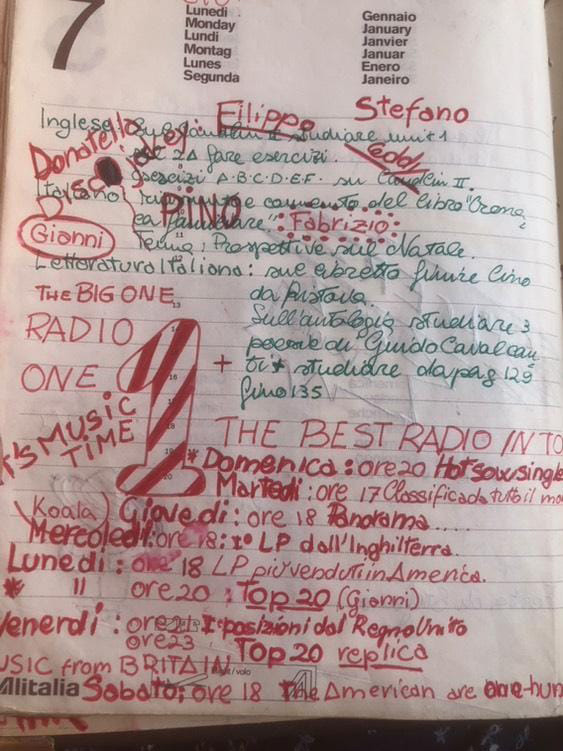 7
Lunedì
Monday
Lundi
Montag
Lunes
Segunda
Gennaio
January
Janvier
Januar
Enero
Janeiro
Filippo
Stefano
Inglese studiare unit 1
Donatello
2A fare esercizi.
esercizi A-B-C-D-E-F. su II.
Italiano: e commento del libro "Cronaca familiare".
PINO
Fabrizio
Gianni
Tema: Prospettive sul Natale.
Letteratura Italiana: sul libretto finire Cino
da Pistoia.
THE BIG ONE
Sull'antologia studiare 3
RADIO
poesie di Guido Cavalcan
ti + studiare da pag 129
ONE
1
+
fino 135
MUSIC
TIME
THE BEST RADIO IN TO
Domenica: ore 20 Hot single
Martedì: ore 17 Classifica di tutto il mo
Koala
Giovedì: ore 18 Panorama.....
Mercoledì: ore 18: 1° LP dall'Inghilterra.
Lunedì: ore 18 LP più venduti in America.
* " ore 20: Top 20 (Gianni)
Venerdì: posizioni dal Regno Unito
ore 23 Top 20 replica
USIC from BRITAIN
Alitalia
/volo
Sabato: ore 18 The American are one-hun